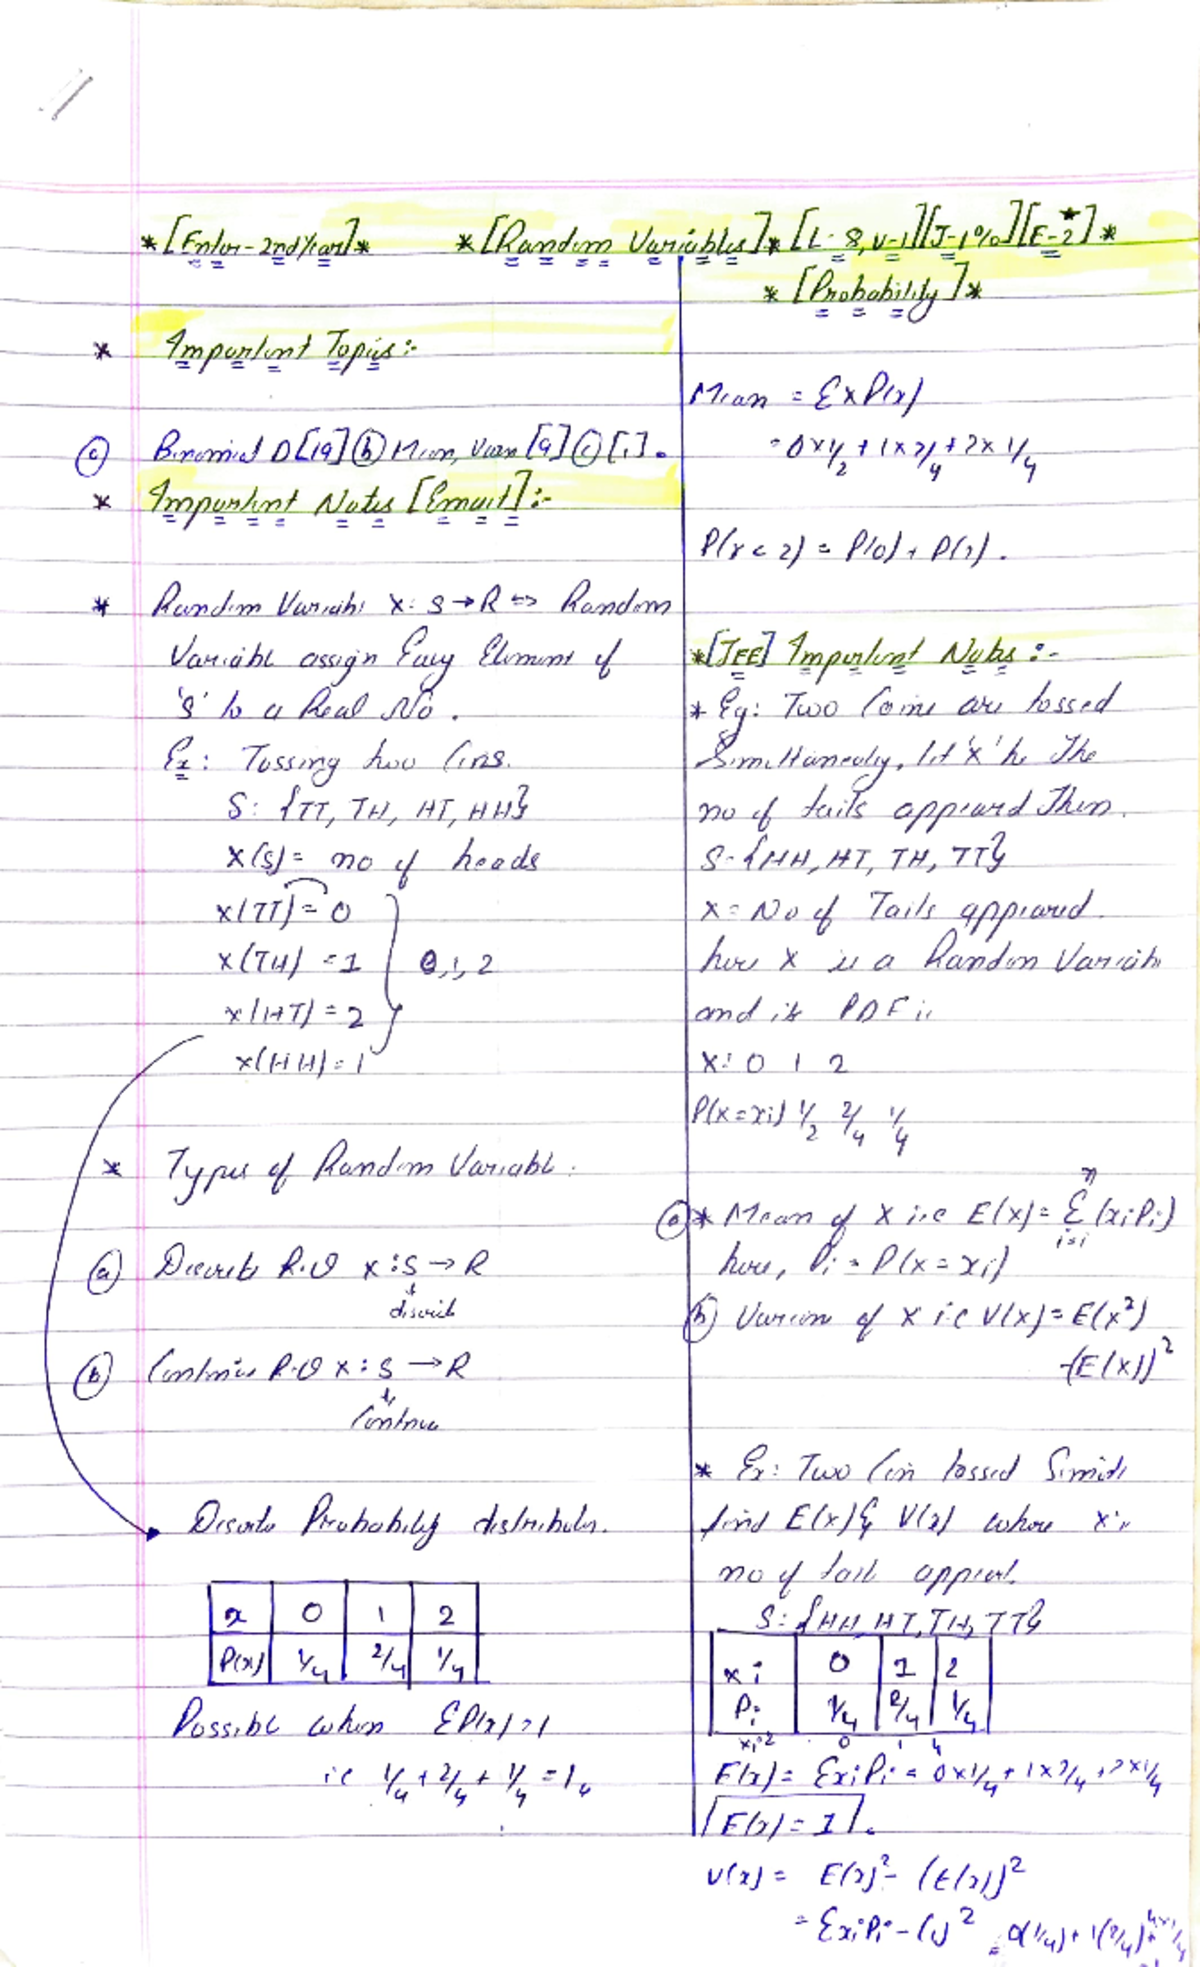 *[Enlor-2ndYear]* *[Random Variables]*[L-8,V-1][J-1%][E-2*]*
*[Probability]*
* Important Topics:-
(c) Binomial D[19] (b) Mean, Vaen [9] (c) [1].
* Important Notes [Emait]:-
* Random Variable X: S→R => Random
Variable assign Every Element of
'S' to a Real No.
Ex: Tossing two Coins.
S: {TT, TH, HT, HH}
X(S)= no of heads
x(TT)=0
x(TH)=1 0,1,2
x(HT)=2
x(HH)=1
* Types of Random Variable:
(a) Discrete R.V x:S→R
discrete
(b) Continuous R.V x:S→R
Continuous
Discrete Probability distribution.
x 0 1 2
P(x) 1/4 2/4 1/4
Possible when ΣP(x)=1
i.e 1/4+2/4+1/4=1
Mean = ΣxP(x)
=0x1/2+1x2/4+2x1/4
P(x<2)=P(0)+P(1).
*[JEE] Important Notes:-
* Eg: Two Coins are tossed
Simultaneouly, let 'x' be The
no of tails appeared Then.
S-{HH, HT, TH, TT}
X=No of Tails appeared.
here X is a Random Variable
and its PDF is
X: 0 1 2
P(x=xi) 1/2 2/4 1/4
(a)* Mean of X i.e E(x)=Σ(xiPi)
n
i=i
here, Pi=P(x=xi)
(b) Varian of X i.e V(x)=E(x²)
-(E(x))²
* Ex: Two Coin tossed Simult
find E(x)& V(x) where x is
no of tail appeart.
S:{HH, HT, TH, TT}
xi 0 1 2
Pi 1/4 2/4 1/4
xi² 0 1 4
E(x)=ΣxiPi=0x1/4+1x2/4+2x1/4
E(x)=1.
V(x)= E(x)²-(E(x))²
=ΣxiPi-(1)² =0(1/4)+1(2/4)+4x1/4